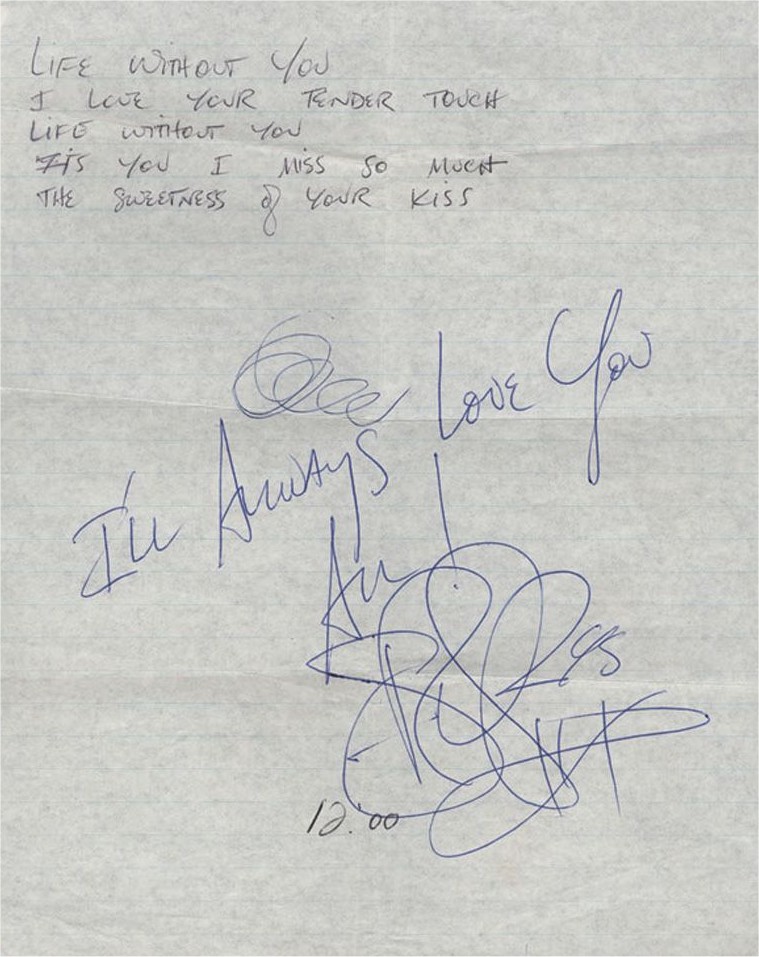 LIFE WITHOUT YOU
I LOVE YOUR TENDER TOUCH
LIFE WITHOUT YOU
ITS YOU I MISS SO MUCH
THE SWEETNESS of YOUR KISS
Love You
I'll Always
All
12:00